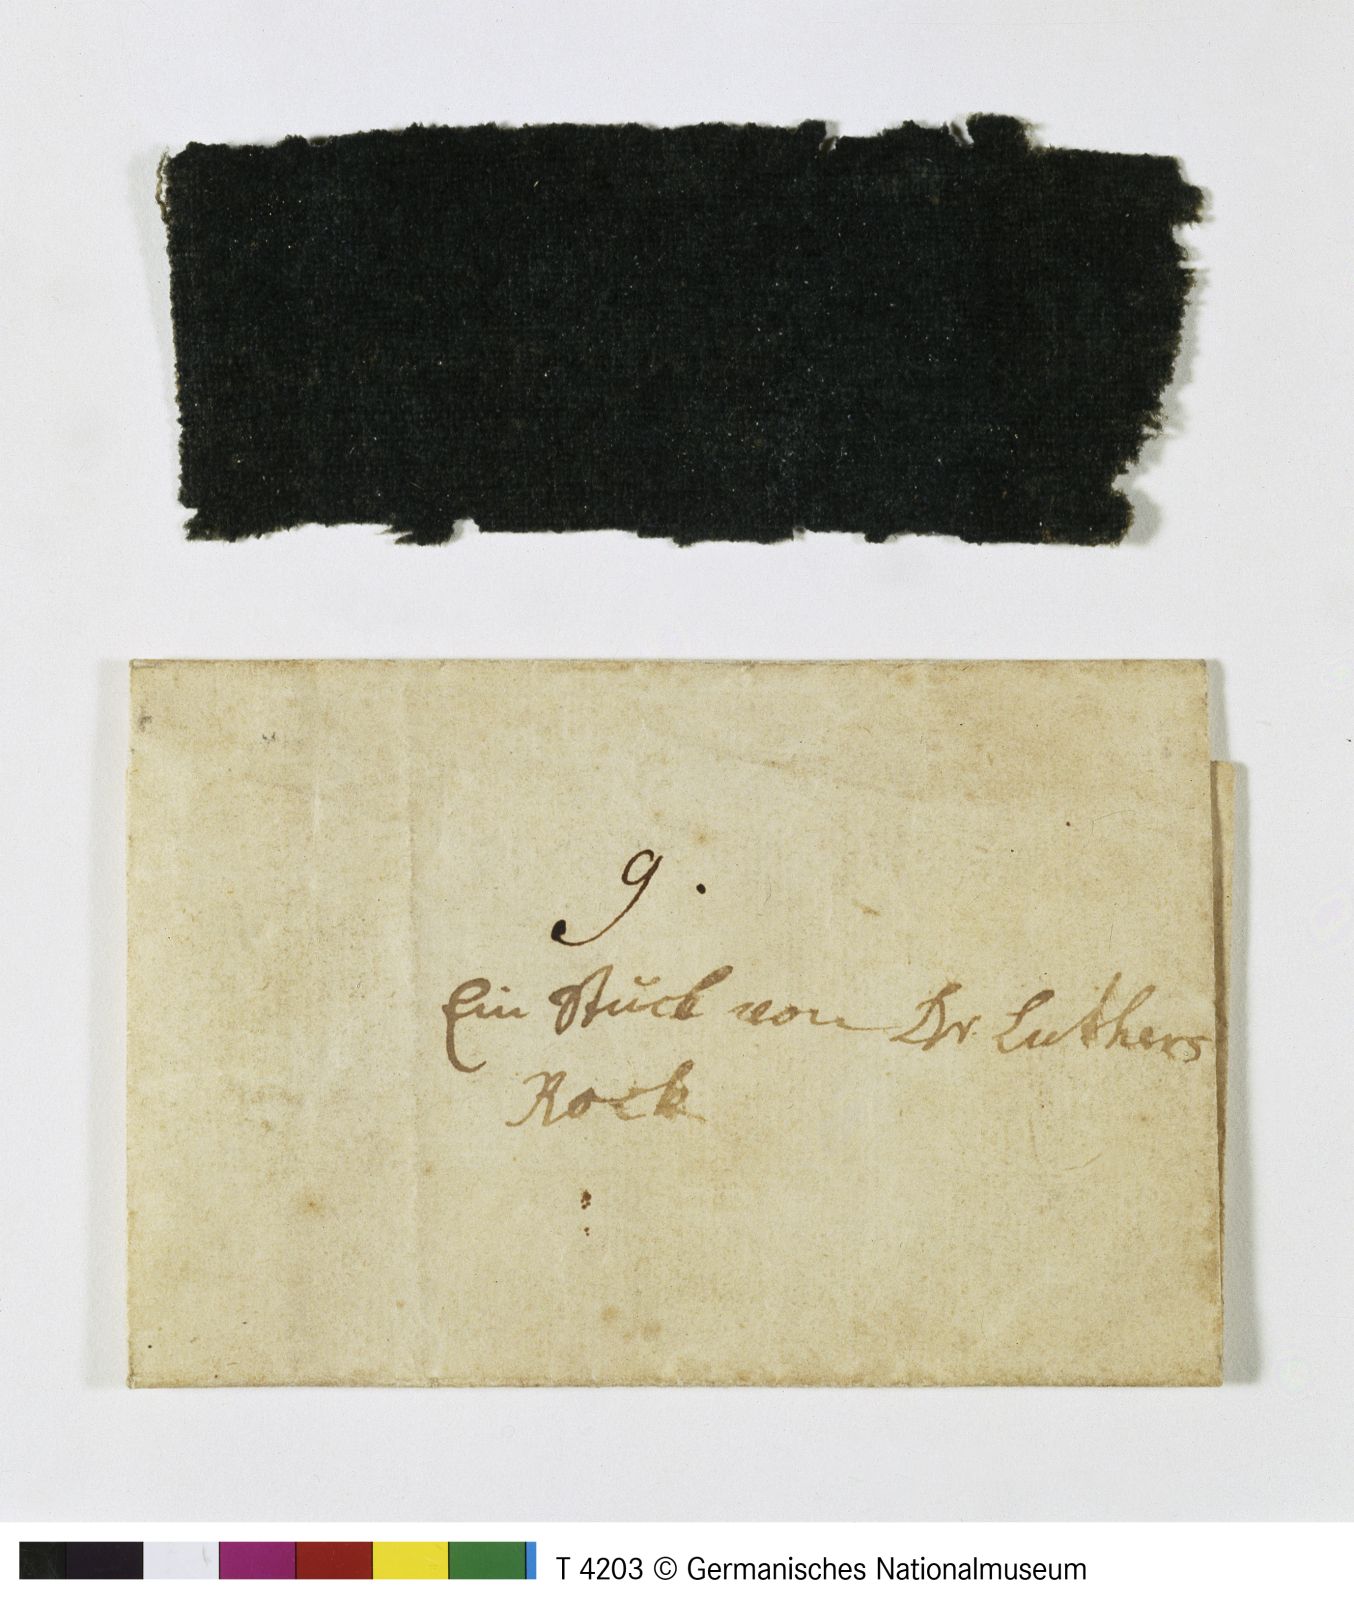 9.
Ein Stück von Dr. Luthers
Rock
T 4203 © Germanisches Nationalmuseum